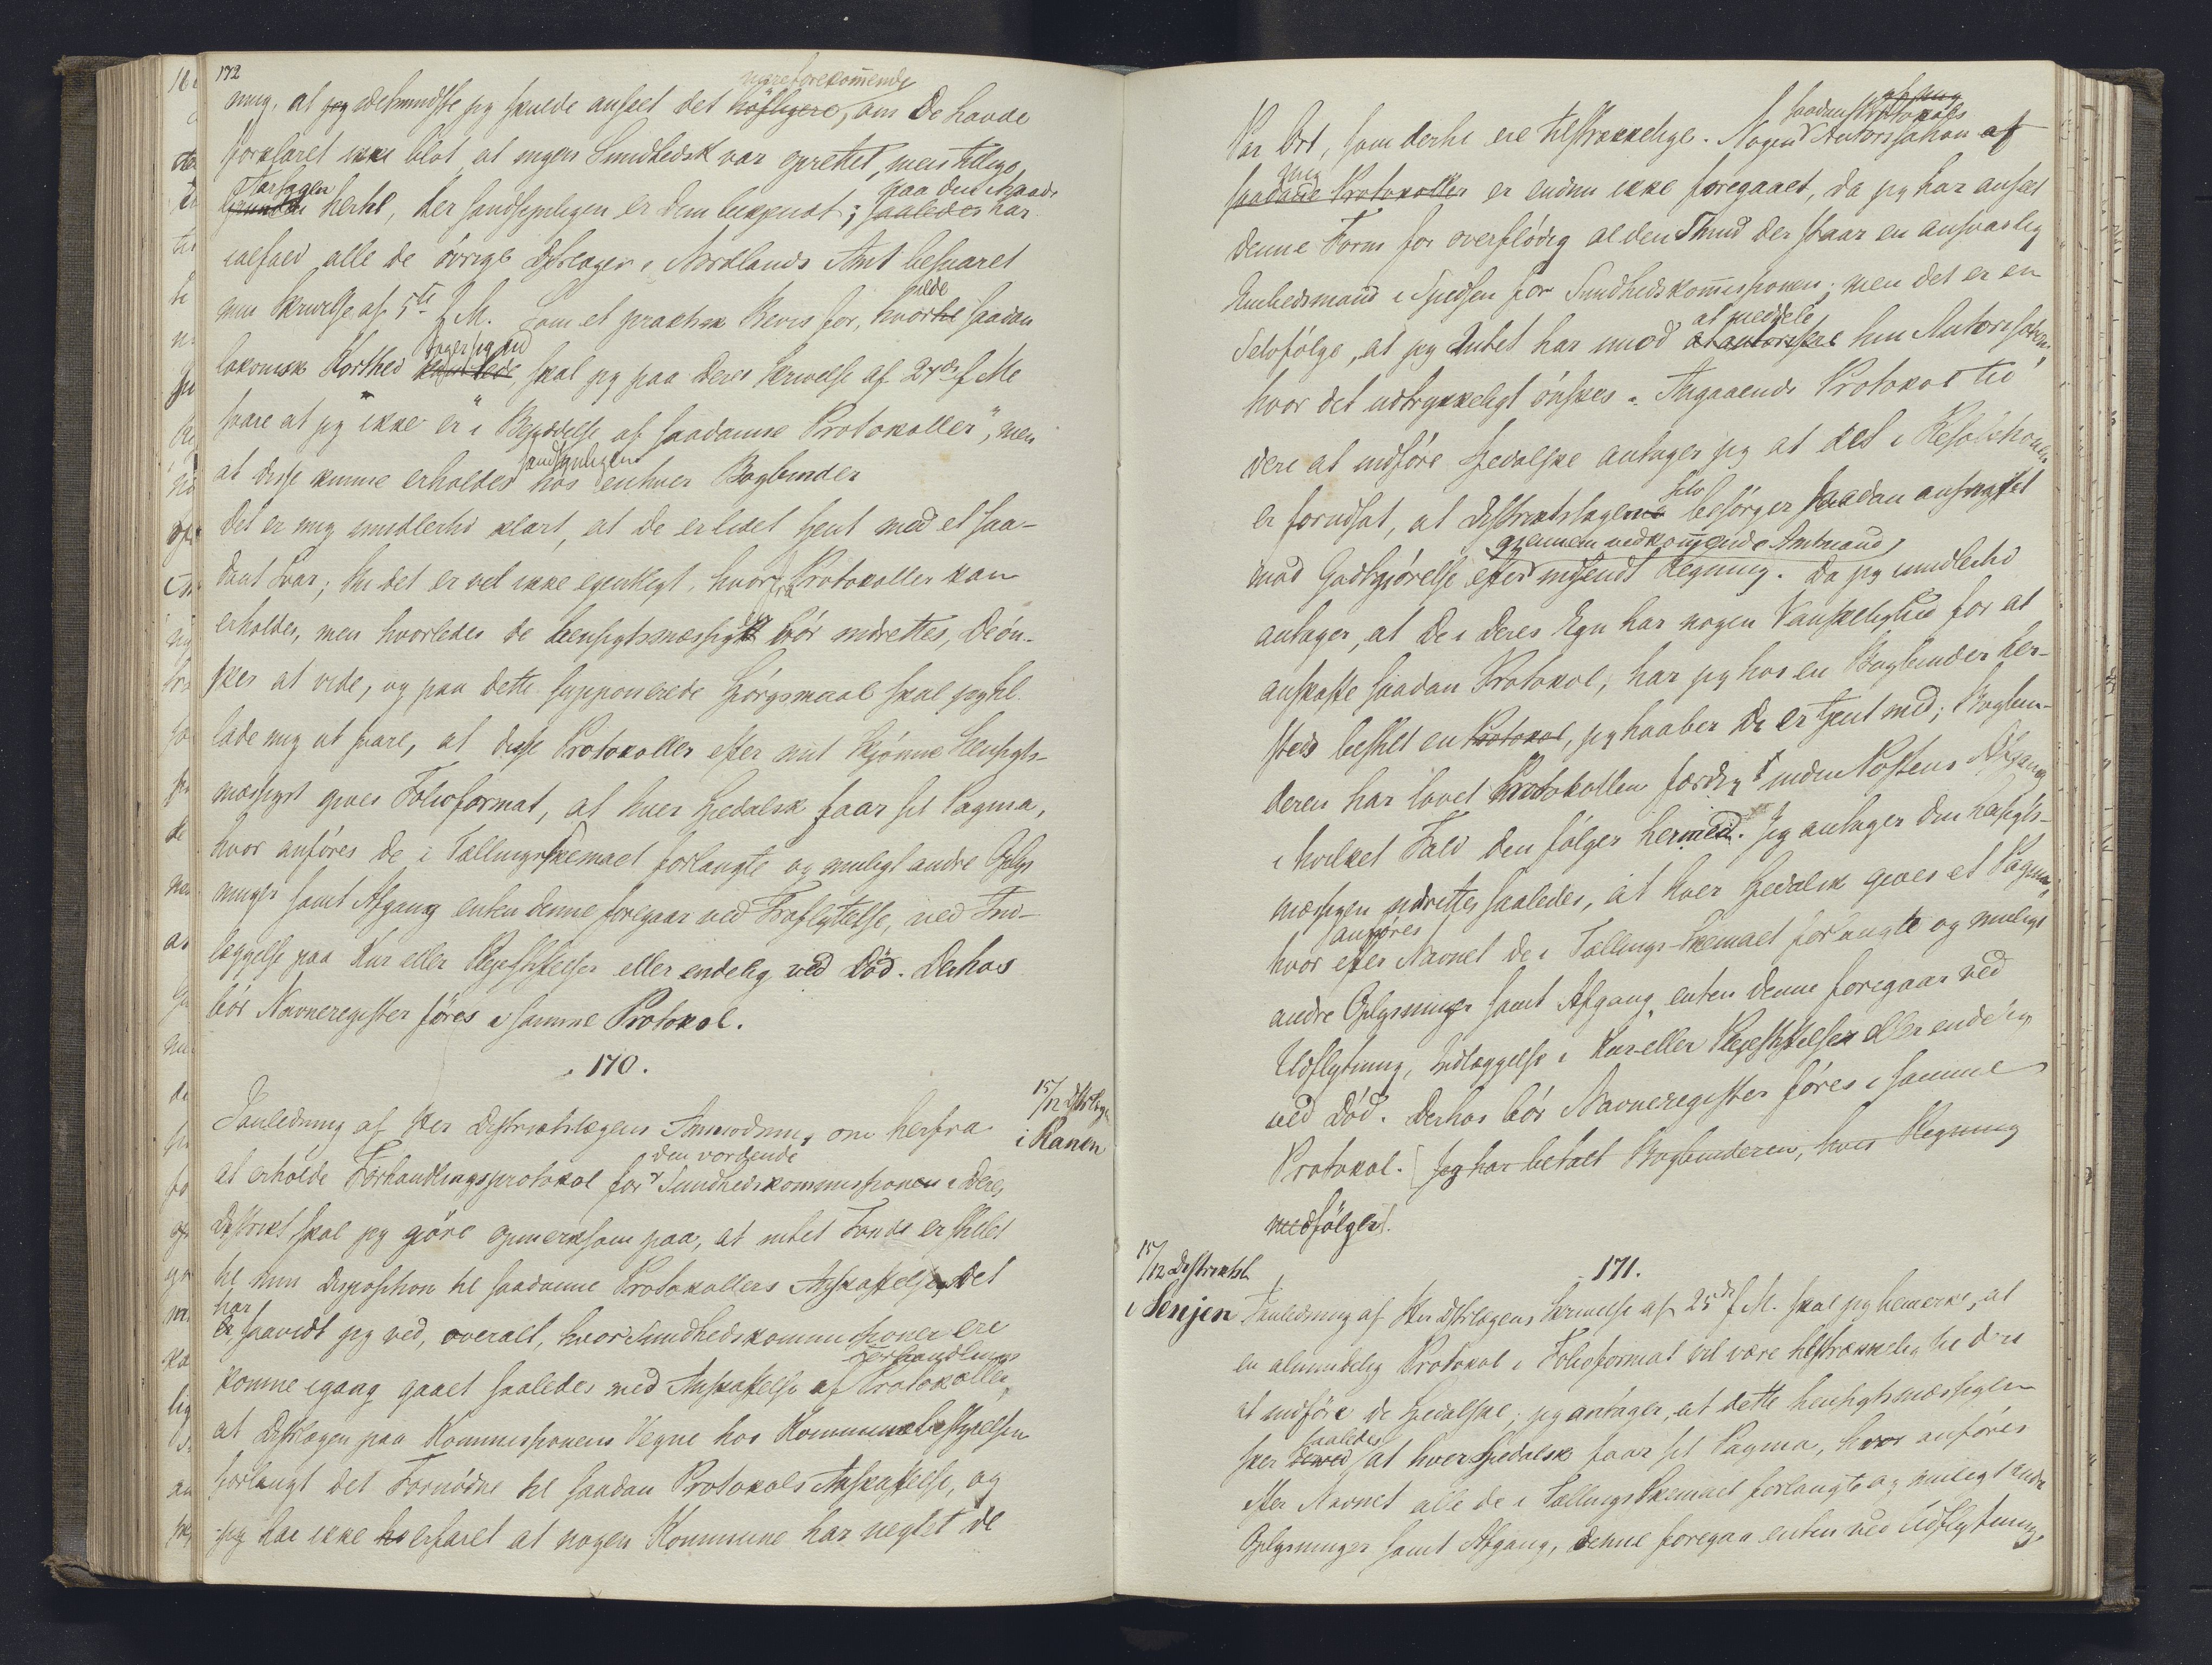 172
mig, at jeg idetmindste jeg skulde anseet det höfligere, om De havde
mere forekommende
forklaret ikke blot at ingen Sundhedsk var oprettet, men tillige
Aarsagen
Grunden hertil, der sandsynligen er Dem bekjendt; saaledes har
paa den Maade
ialfald alle de övrige Distrlæger i Nordlands Amt besvaret
min Skrivelse af 5te f. M. Som et praktisk Bevis for, hvortil saadan
lakonisk Korthed kan lede skal jeg paa Deres Skrivelse af 27de f Md
svare at jeg ikke er "i Besiddelse af saadanne Protokoller", men
sandsynligvis
at disse kunne erholdes hos enhver Bogbinder
Det er mig imidlertid klart, at De er lidet tjent med et saa-
dant Svar; thi det er vel ikke egentligt, hvorfra Protokoller kan
erholdes, men hvorledes de hensigtsmæssigst bör indrettes, De ön-
sker at vide, og paa dette supponerede Spörgsmaal skal jeg til-
lade mig at svare, at disse Protokoller efter mit Skjönne Hensigts-
mæssigst gives Folioformat, at hver Spedalsk faar sit Pagina,
hvor anföres de i Tællingsskemaet forlangte og muligt andre Oplys
ninger samt Afgang enten denne foregaar ved Fraflyttelse, ved Ind-
læggelse paa Kur eller Plejestiftelser eller endelig ved Död. Derhos
bör Navneregister föres i samme Protokol.
170.
15/12 Distrlæge
i Ranen
I anledning af Her Distriktslægens Anmodning om herfra
den vordende
at erholde Forhandlingsprotokol for Sundhedskommissionen i Deres
Distrikt skal jeg göre opmerksom paa, at intet Fonds er stillet
til min Disposition til saadanne Protokollers Anskaffelse. Det
har
er saavidt jeg ved, overalt, hvor Sundhedskommissioner ere
Forhandlings
komne igang gaaet saaledes med Anskaffelse af Protokoller,
at Distrlægen paa Kommissionens Vegne hos Kommunebestyrelsen
forlangt det Fornödne til saadan Protokols Anskaffelse, og
jeg har ikke erfaret at nogen Kommune har negtet de
saadan Protokols
Par Ort, som dertil ere tilstrækkelige. Nogen Autorisation af
mig
saadanne Protokoller er endnu ikke foregaaet, da jeg har anseet
denne Form for overflödig al den Stund der staar en ansvarlig
Embedsmand i Spidsen for Sundhedskommissionen; men det er en
at meddele
Selvfölge, at jeg Intet har imod at autorisere hin Autorisation,
hvor det udtrykkeligt önskes. Angaaende Protokol til
deri at indföre Spedalske antager jeg at det i Resolutionen
selv
er forudsat, at Distriktslægerne besörger saadan anskaffet
gjennem vedkommende Amtmand
mod Godtgjörelse efter indsendt Regning. Da jeg imidlertid
antager, at De i Deres Egn har nogen Vanskelighed for at
anskaffe saadan Protokol, har jeg hos en Bogbinder her-
steds bestilt en Protokol, jeg haaber De er tjent med; Bogbin-
deren har lovet Protokollen færdig inden Postens Afgang
i hvilket Fald den fölger hermed. Jeg antager den hensigts-
mæssigen indrettes saaledes, at hver Spedalsk gives et Pagina,
anföres
hvor efter Navnet de i Tællings-Skemaet forlangte og muligt
andre Oplysninger samt Afgang, enten denne foregaar ved
Udflytning, Indlæggelse i Kur- eller Plejestiftelser eller endelig
ved Död. Derhos bör Navneregister föres i samme
Protokol. [Jeg har betalt Bogbinderen, hvis Regning
medfölger].
15/12 Distriktsl
i Senjen
171.
I anledning af Her Distrlægens Skrivelse af 25de f. M. skal jeg bemerke, at
en almindelig Protokol i Folioformat vil være tilstrækkelig til deri
at indföre de Spedalske; jeg antager, at dette hensigtsmæssigen
saaledes
sker derved at hver Spedalsk faar sit Pagina, hvor anföres
efter Navnet alle de i Tællings Skemaet forlangte og muligt andre
Oplysninger samt Afgang, denne foregaa enten ved Udflytning,